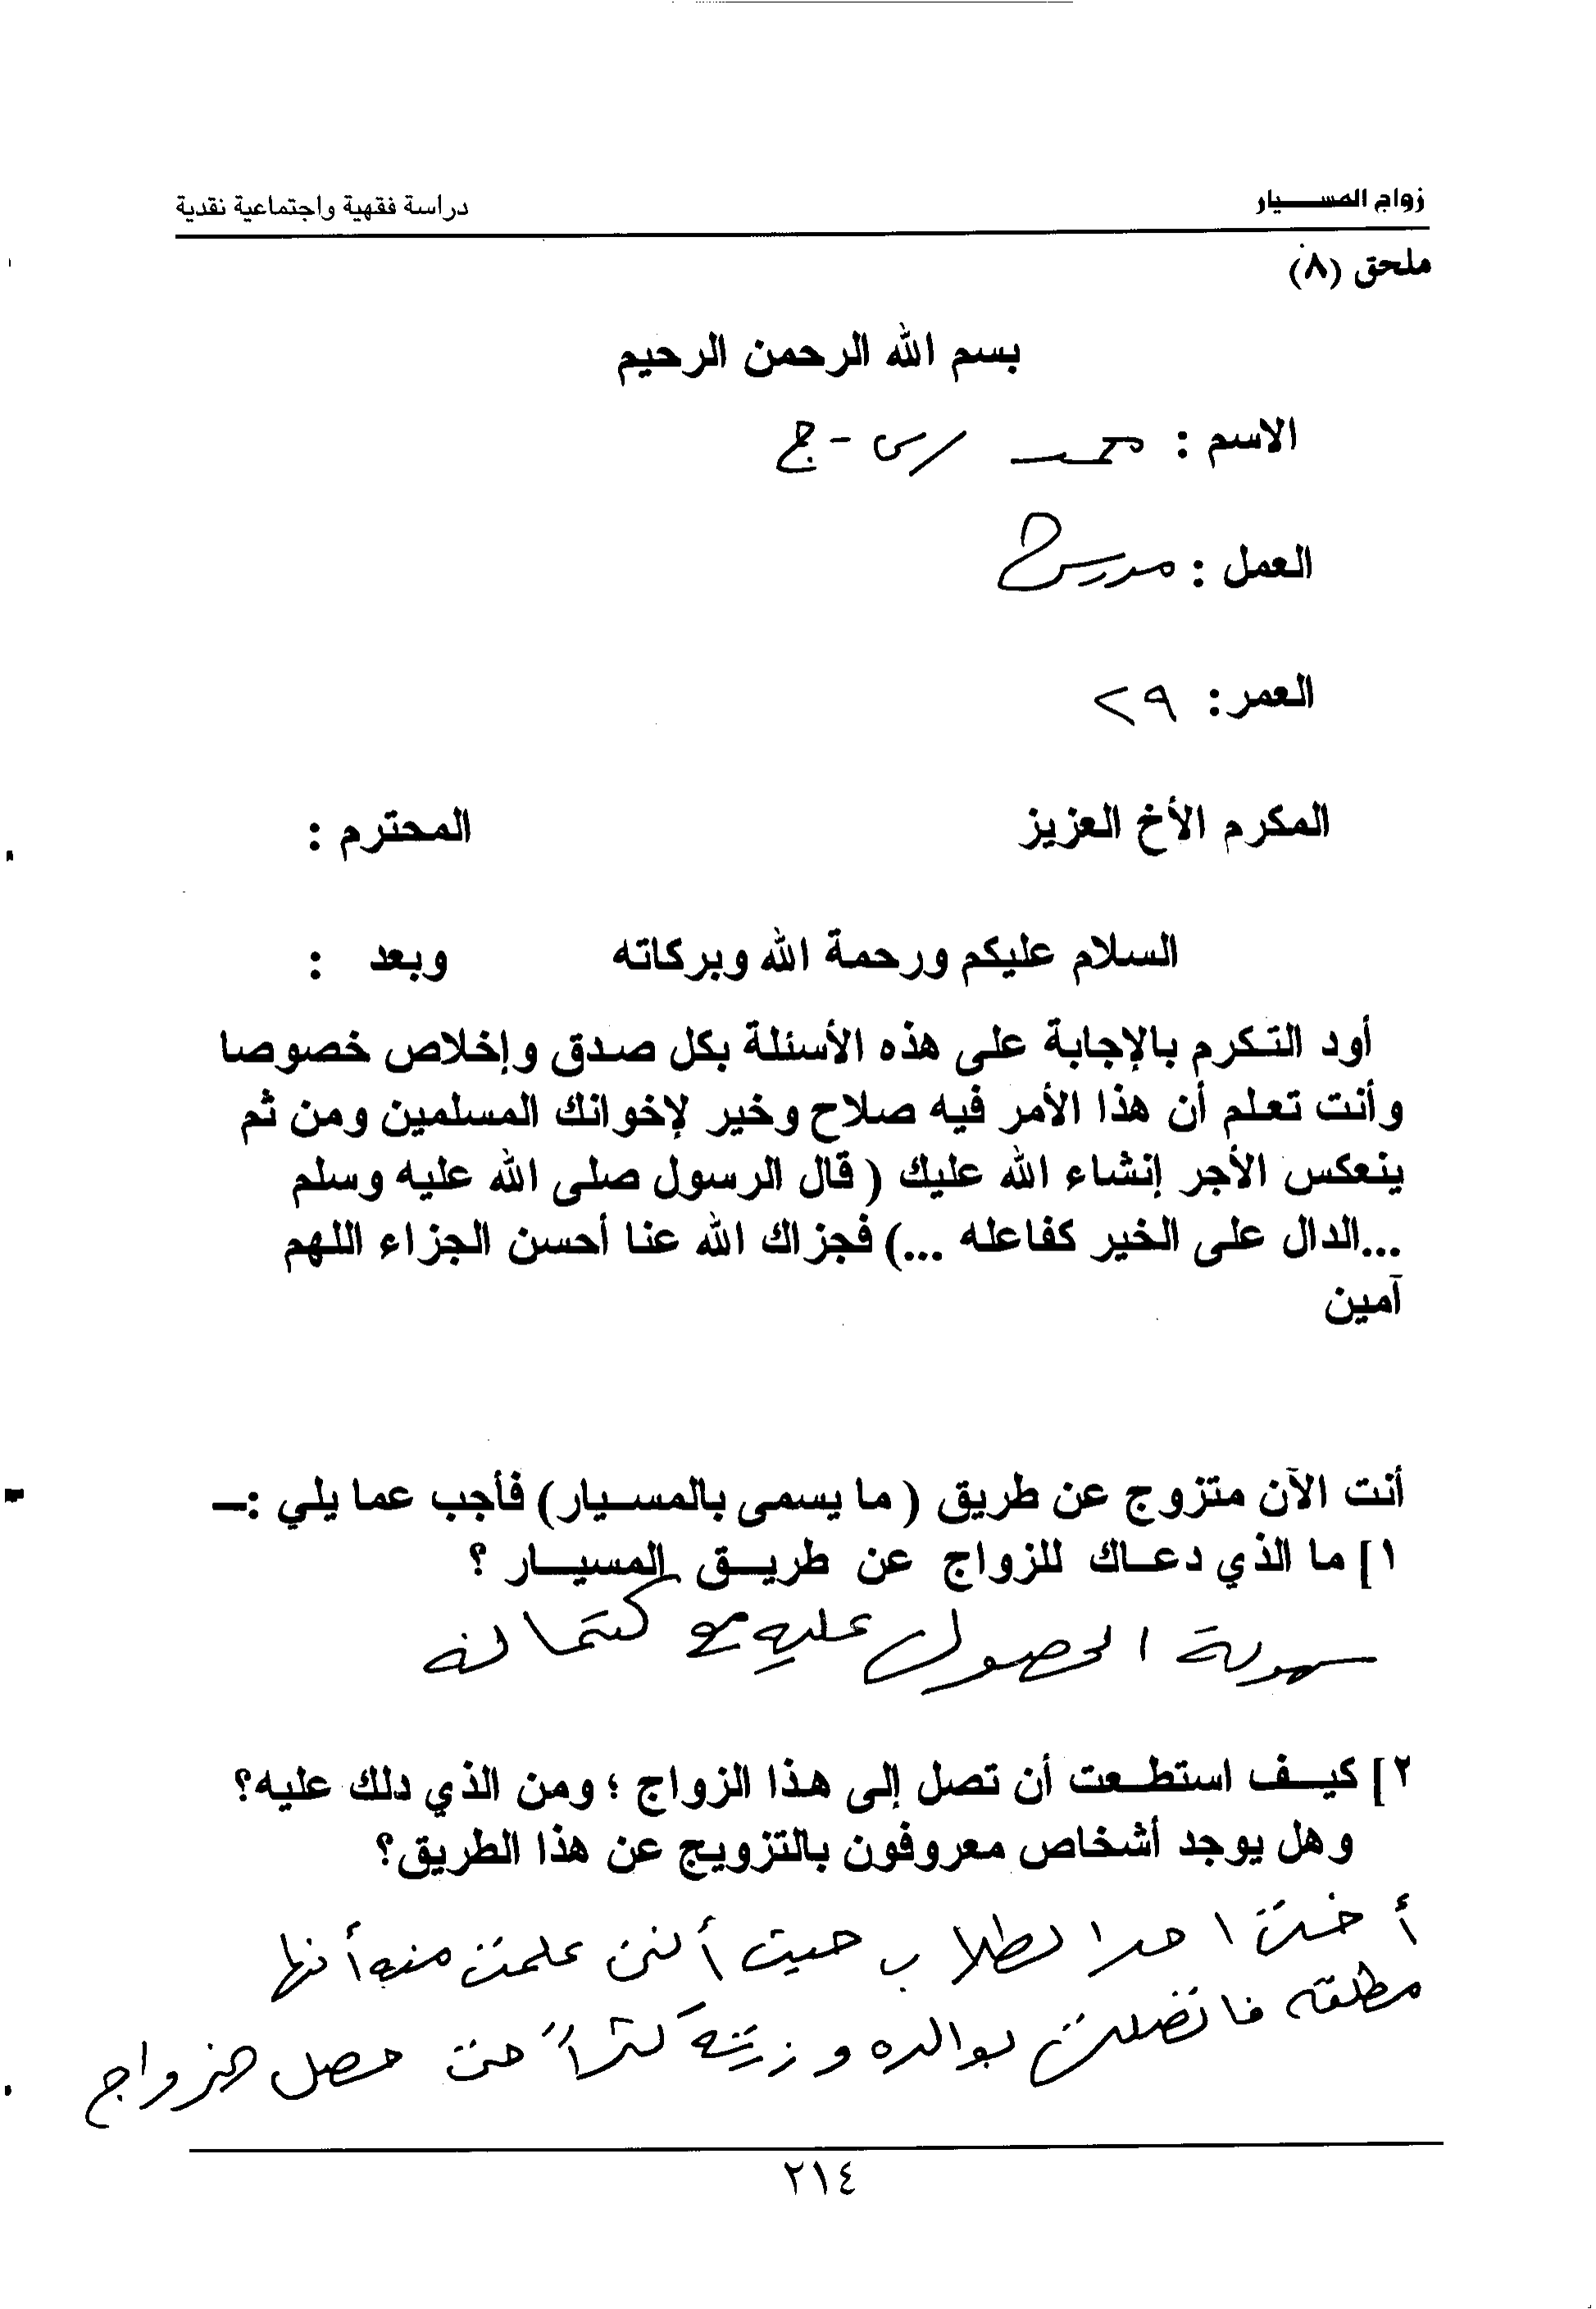 زواج المسيار
دراسة فقهية واجتماعية نقدية
ملحق (٨)
بسم الله الرحمن الرحيم
الاسم : محمد س - ج
العمل : مدرس
العمر : ٢٩
المكرم الأخ العزيز المحترم :
السلام عليكم ورحمة الله وبركاته وبعد :
أود التكرم بالإجابة على هذه الأسئلة بكل صدق وإخلاص خصوصا
وأنت تعلم أن هذا الأمر فيه صلاح وخير لإخوانك المسلمين ومن ثم
ينعكس الأجر إنشاء الله عليك ( قال الرسول صلى الله عليه وسلم
...الدال على الخير كفاعله ...) فجزاك الله عنا أحسن الجزاء اللهم
آمين
أنت الآن متزوج عن طريق ( ما يسمى بالمسيار) فأجب عما يلي :–
١] ما الذي دعاك للزواج عن طريق المسيار ؟
سهولة الحصول عليه مع كتمانه
٢] كيف استطعت أن تصل إلى هذا الزواج ؛ ومن الذي دلك عليه؟
وهل يوجد أشخاص معروفون بالتزويج عن هذا الطريق؟
أخت احد الطلاب حيث أنني علمت منه أنها
مطلقه فاتصلت بوالده وزرته كثيراً حتى حصل الزواج
٢١٤